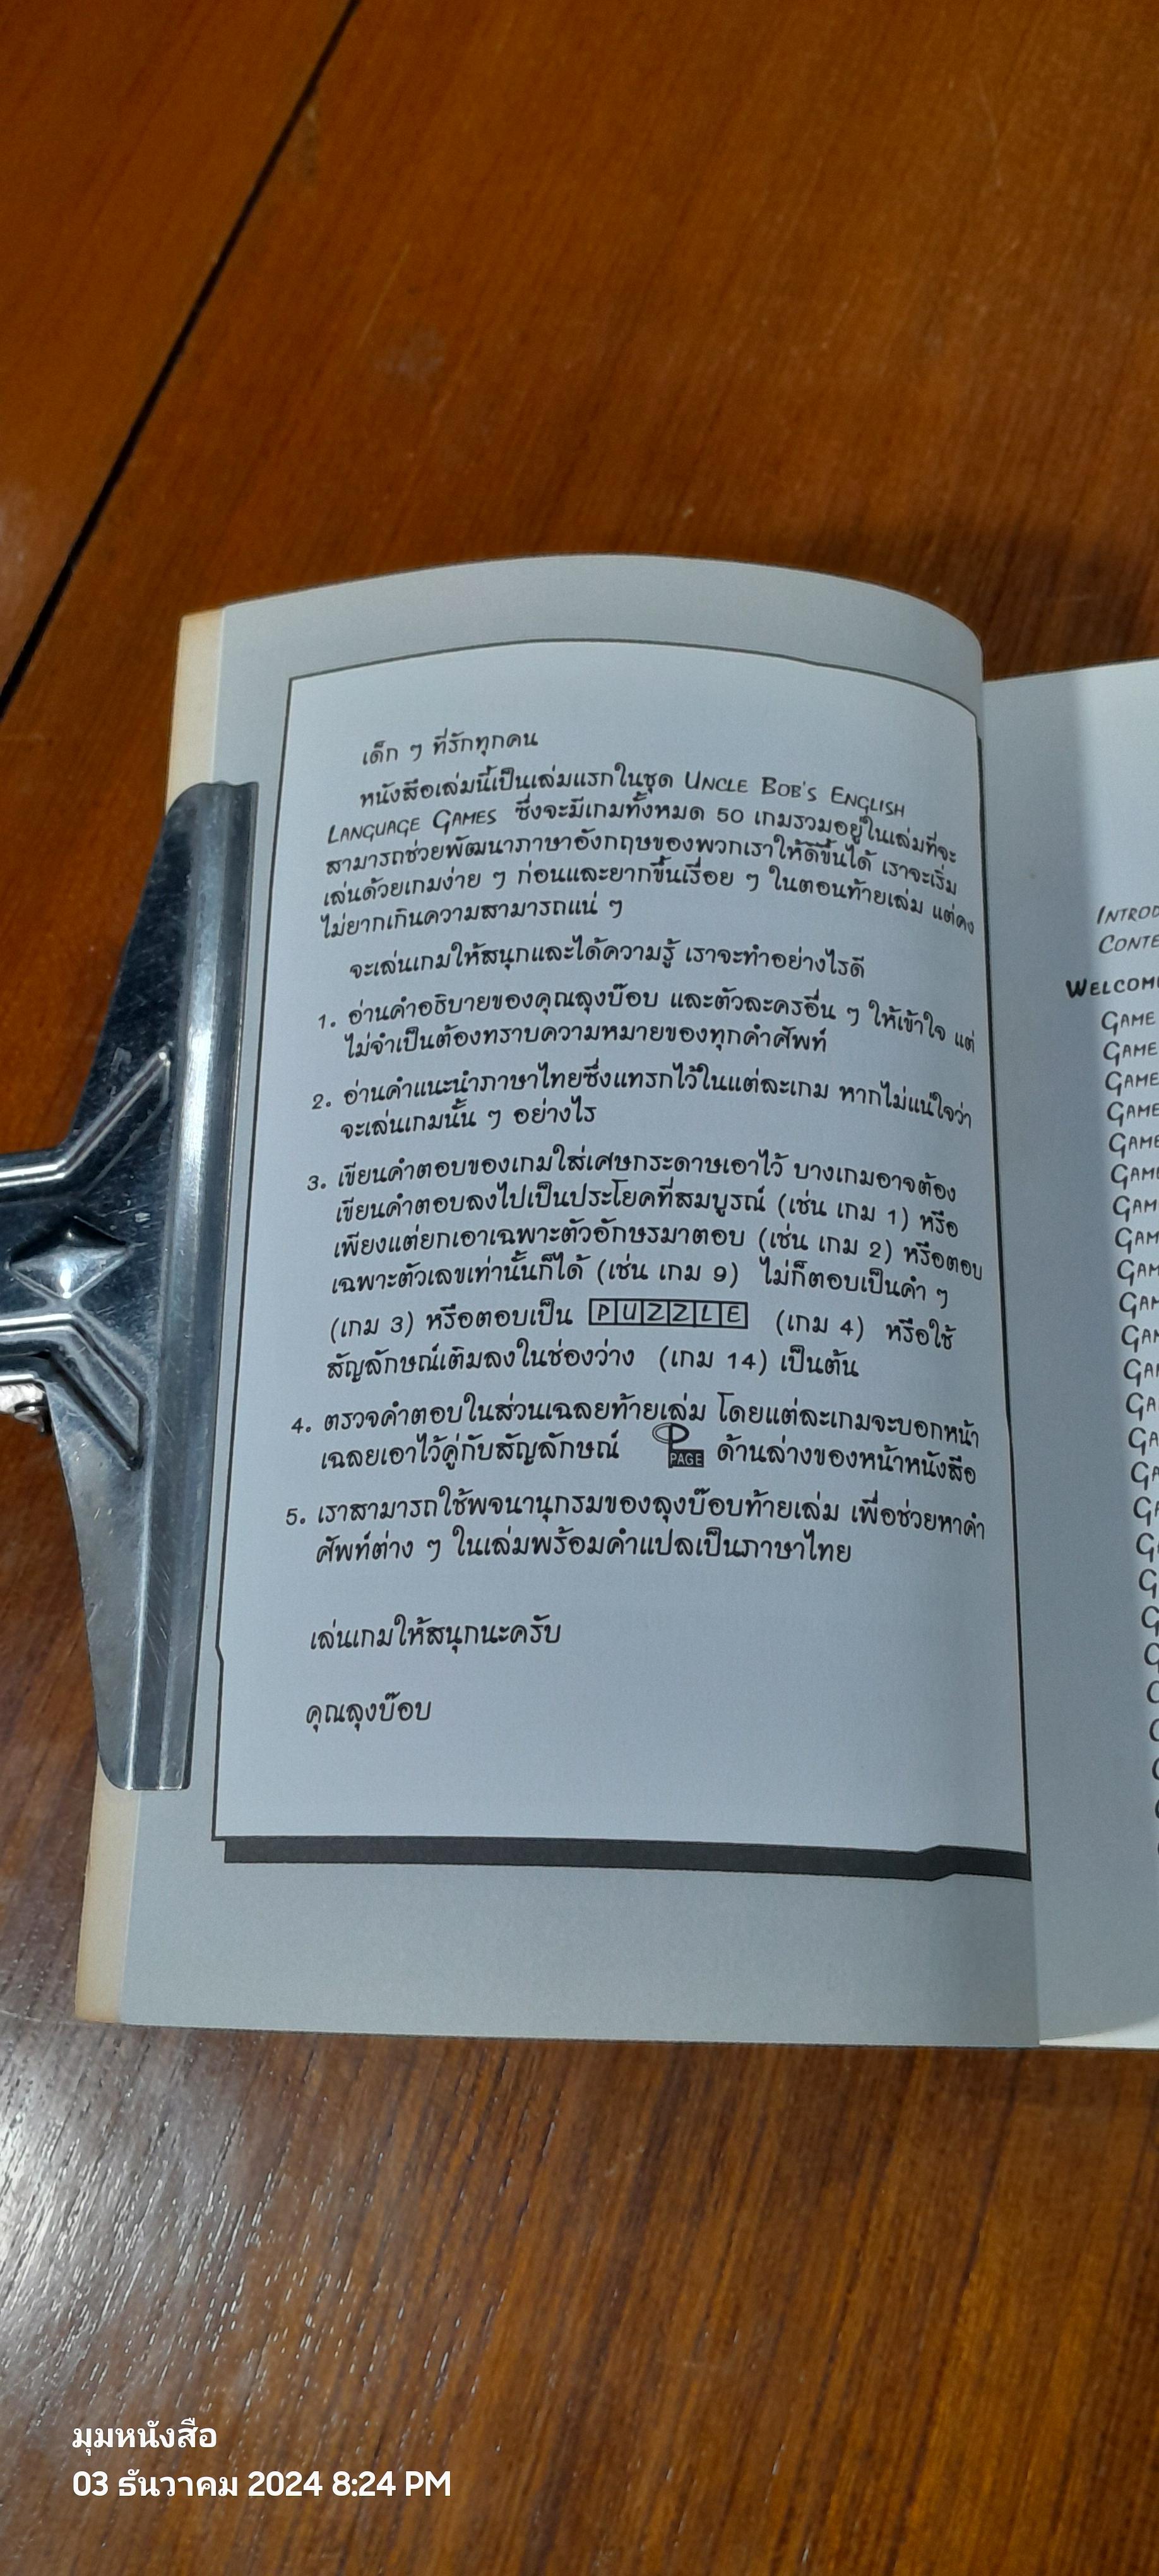 เด็ก ๆ ที่รักทุกคน
หนังสือเล่มนี้เป็นเล่มแรกในชุด UNCLE BOB'S ENGLISH
LANGUAGE GAMES ซึ่งจะมีเกมทั้งหมด 50 เกมรวมอยู่ในเล่มที่จะ
สามารถช่วยพัฒนาภาษาอังกฤษของพวกเราให้ดีขึ้นได้ เราจะเริ่ม
เล่นด้วยเกมง่าย ๆ ก่อนและยากขึ้นเรื่อย ๆ ในตอนท้ายเล่ม แต่คง
ไม่ยากเกินความสามารถแน่ ๆ
จะเล่นเกมให้สนุกและได้ความรู้ เราจะทำอย่างไรดี
1. อ่านคำอธิบายของคุณลุงบ๊อบ และตัวละครอื่น ๆ ให้เข้าใจ แต่
ไม่จำเป็นต้องทราบความหมายของทุกคำศัพท์
2. อ่านคำแนะนำภาษาไทยซึ่งแทรกไว้ในแต่ละเกม หากไม่แน่ใจว่า
จะเล่นเกมนั้น ๆ อย่างไร
3. เขียนคำตอบของเกมใส่เศษกระดาษเอาไว้ บางเกมอาจต้อง
เขียนคำตอบลงไปเป็นประโยคที่สมบูรณ์ (เช่น เกม 1) หรือ
เพียงแต่ยกเอาเฉพาะตัวอักษรมาตอบ (เช่น เกม 2) หรือตอบ
เฉพาะตัวเลขเท่านั้นก็ได้ (เช่น เกม 9) ไม่ก็ตอบเป็นคำ ๆ
(เกม 3) หรือตอบเป็น PUZZLE (เกม 4) หรือใช้
สัญลักษณ์เติมลงในช่องว่าง (เกม 14) เป็นต้น
4. ตรวจคำตอบในส่วนเฉลยท้ายเล่ม โดยแต่ละเกมจะบอกหน้า
เฉลยเอาไว้คู่กับสัญลักษณ์ PAGE ด้านล่างของหน้าหนังสือ
5. เราสามารถใช้พจนานุกรมของลุงบ๊อบท้ายเล่ม เพื่อช่วยหาคำ
ศัพท์ต่าง ๆ ในเล่มพร้อมคำแปลเป็นภาษาไทย
เล่นเกมให้สนุกนะครับ
คุณลุงบ๊อบ
WELCOM
GAME
GAME
GAME
GAME
มุมหนังสือ
03 ธันวาคม 2024 8:24 PM